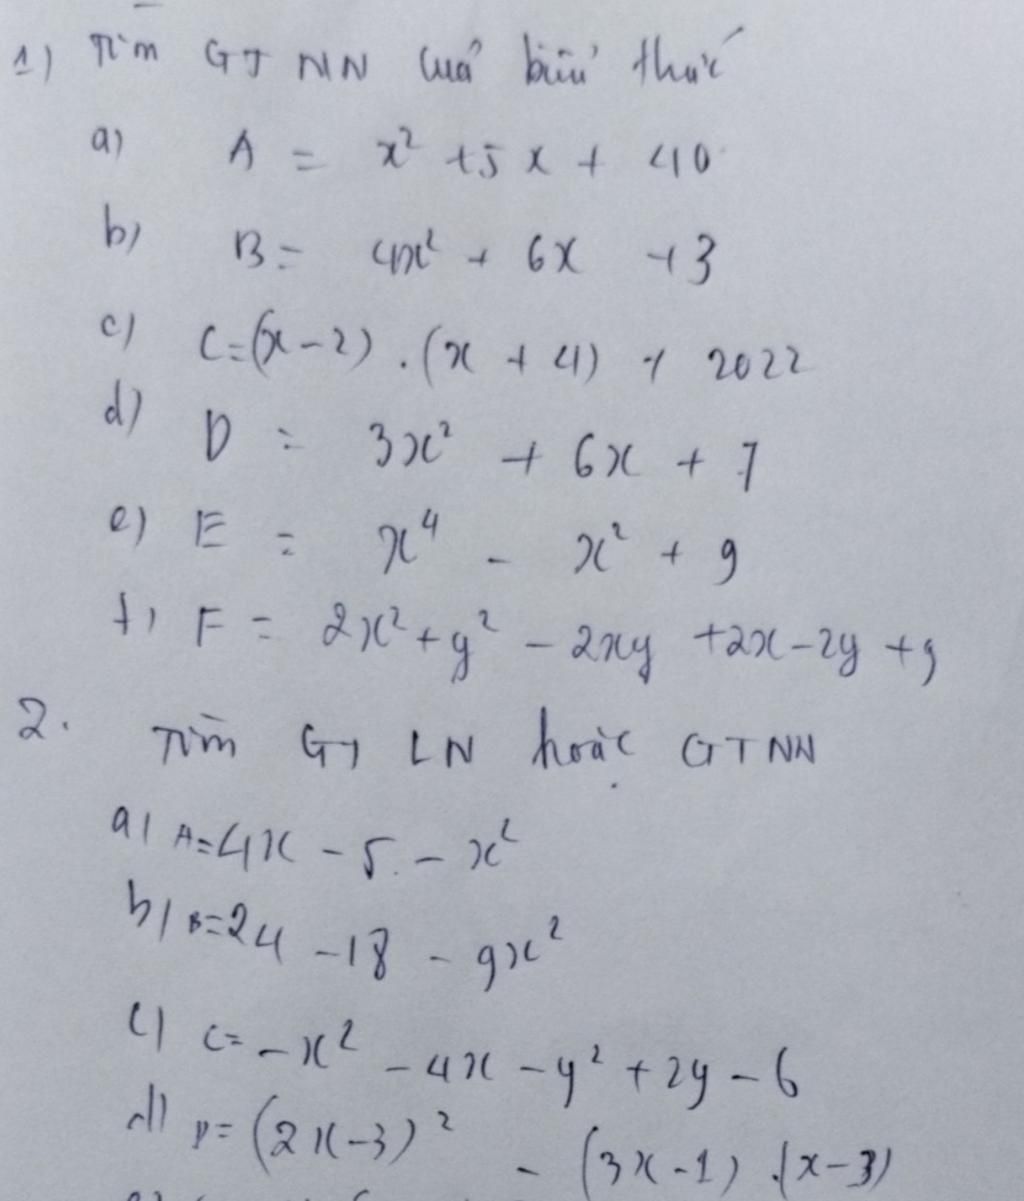 1) Tìm GTNN của biểu thức
a) A = x² + 5x + 40
b) B = 4x² + 6x + 3
c) C = (x - 2) . (x + 4) + 2022
d) D = 3x² + 6x + 7
e) E = x⁴ - x² + 9
f) F = 2x² + y² - 2xy + 2x - 2y + 9
2. Tìm GTLN hoặc GTNN
a) A = 4x - 5 - x²
b) B = 24 - 18 - 9x²
c) C = -x² - 4x - y² + 2y - 6
d) D = (2x - 3)² - (3x - 1) . (x - 3)